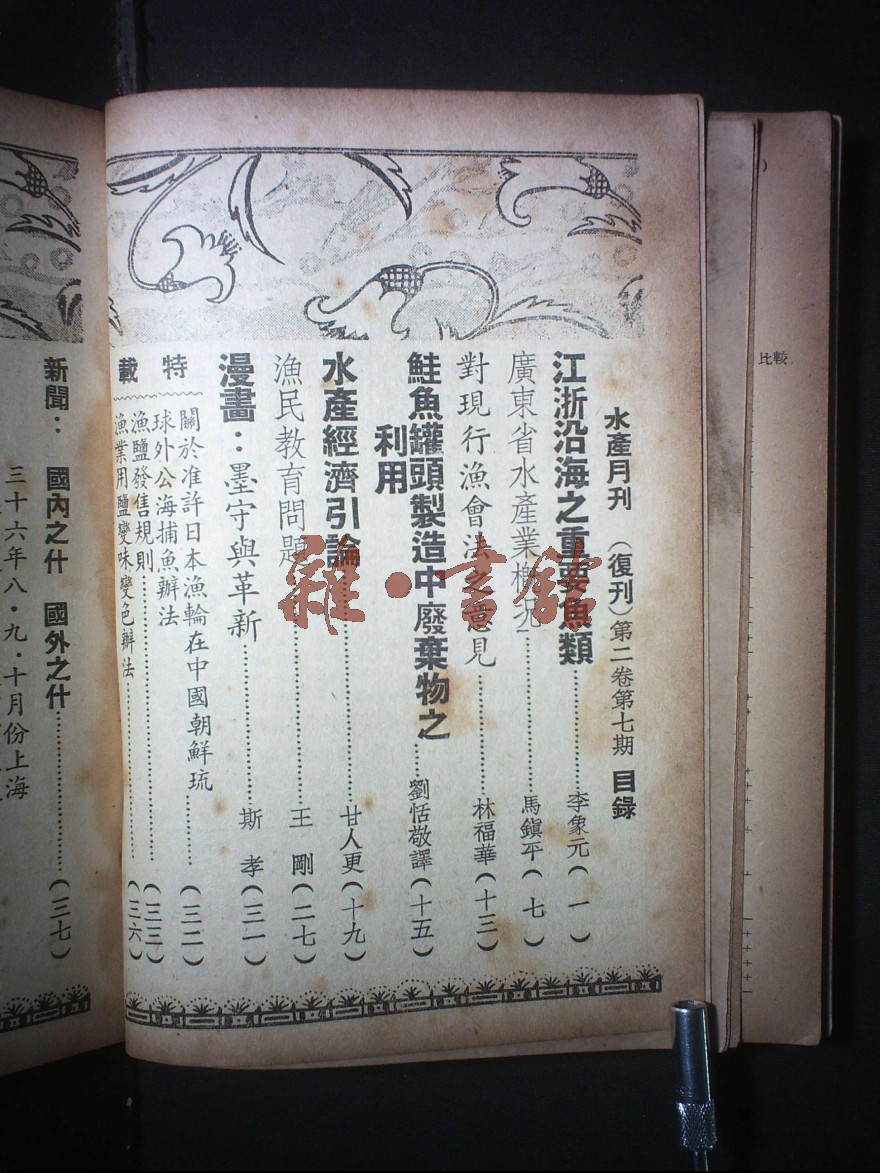 水產月刊 （復刊）第二卷第七期 目錄
江浙沿海之重要魚類……李象元（一）
廣東省水產業概况……馬鎭平（七）
對現行漁會法之意見……林福華（十三）
鮭魚罐頭製造中廢棄物之
利用……劉恬敬譯（十五）
水產經濟引論……甘人更（十九）
漁民教育問題……王 剛（二七）
漫畫：墨守與革新……斯 孝（三一）
特載
關於准許日本漁輪在中國朝鮮琉
球外公海捕魚辦法……（三二）
漁鹽發售規則……（三三）
漁業用鹽變味變色辦法……（三六）
新聞： 國內之什 國外之什……（三七）
三十六年八・九・十月份上海
比較
雜・書館